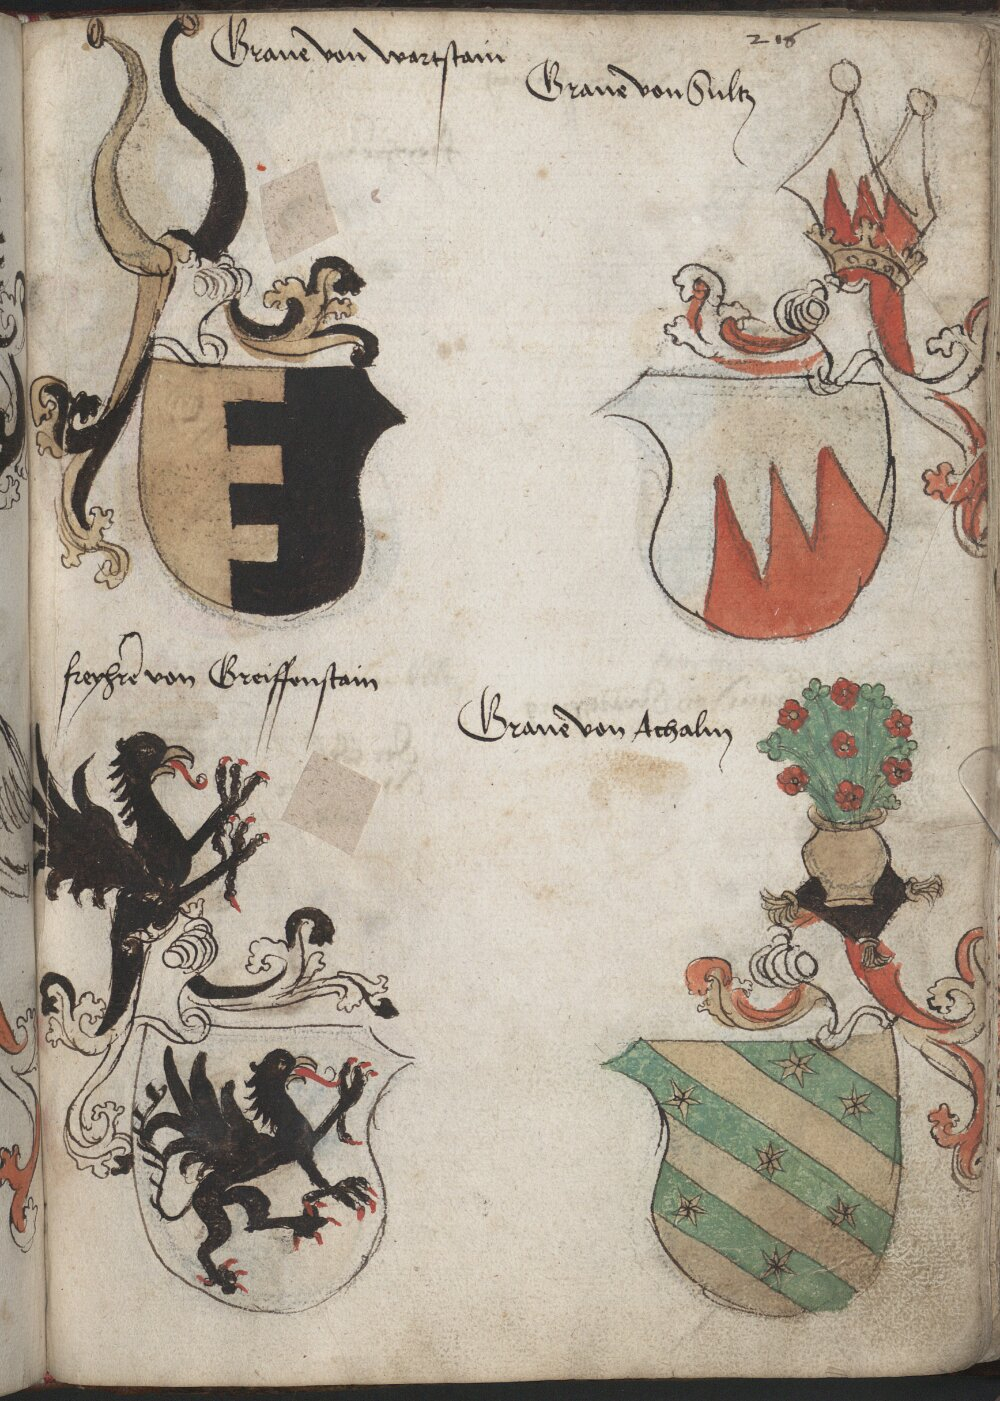 216
Graue von Wartstain
Graue von Sultz
freyhr̃e von Greiffenstain
Graue von Achalm